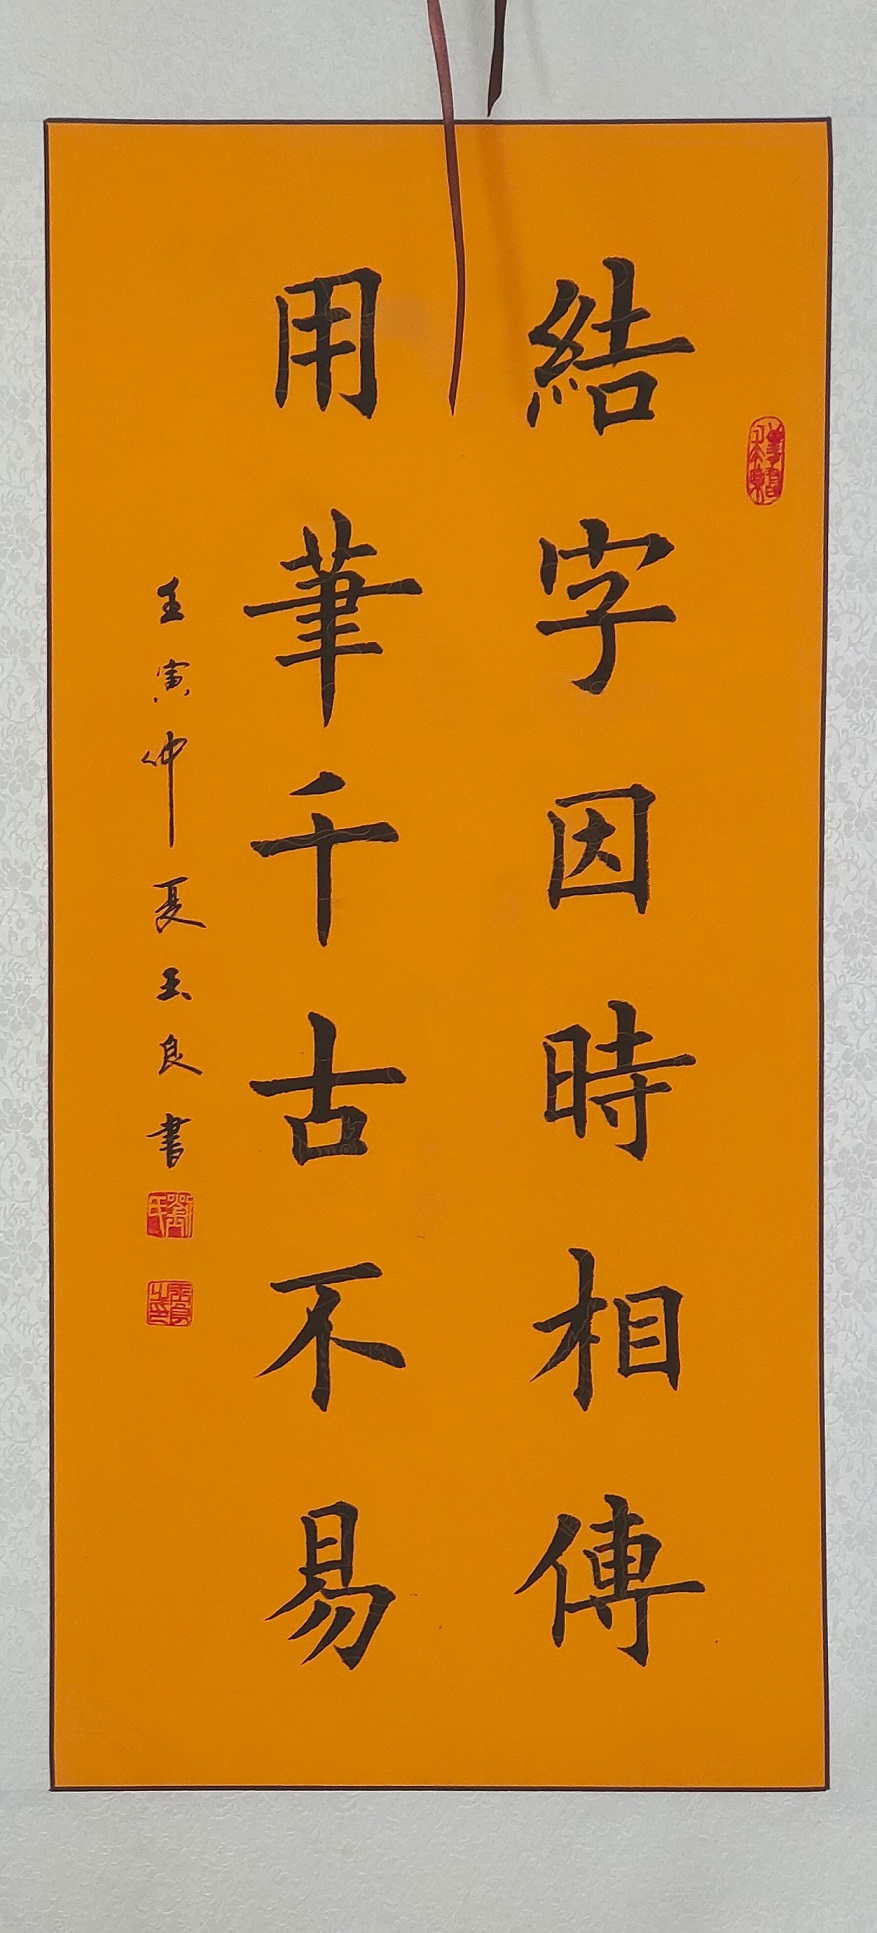 結字因時相傳
用筆千古不易
壬寅仲夏玉良書